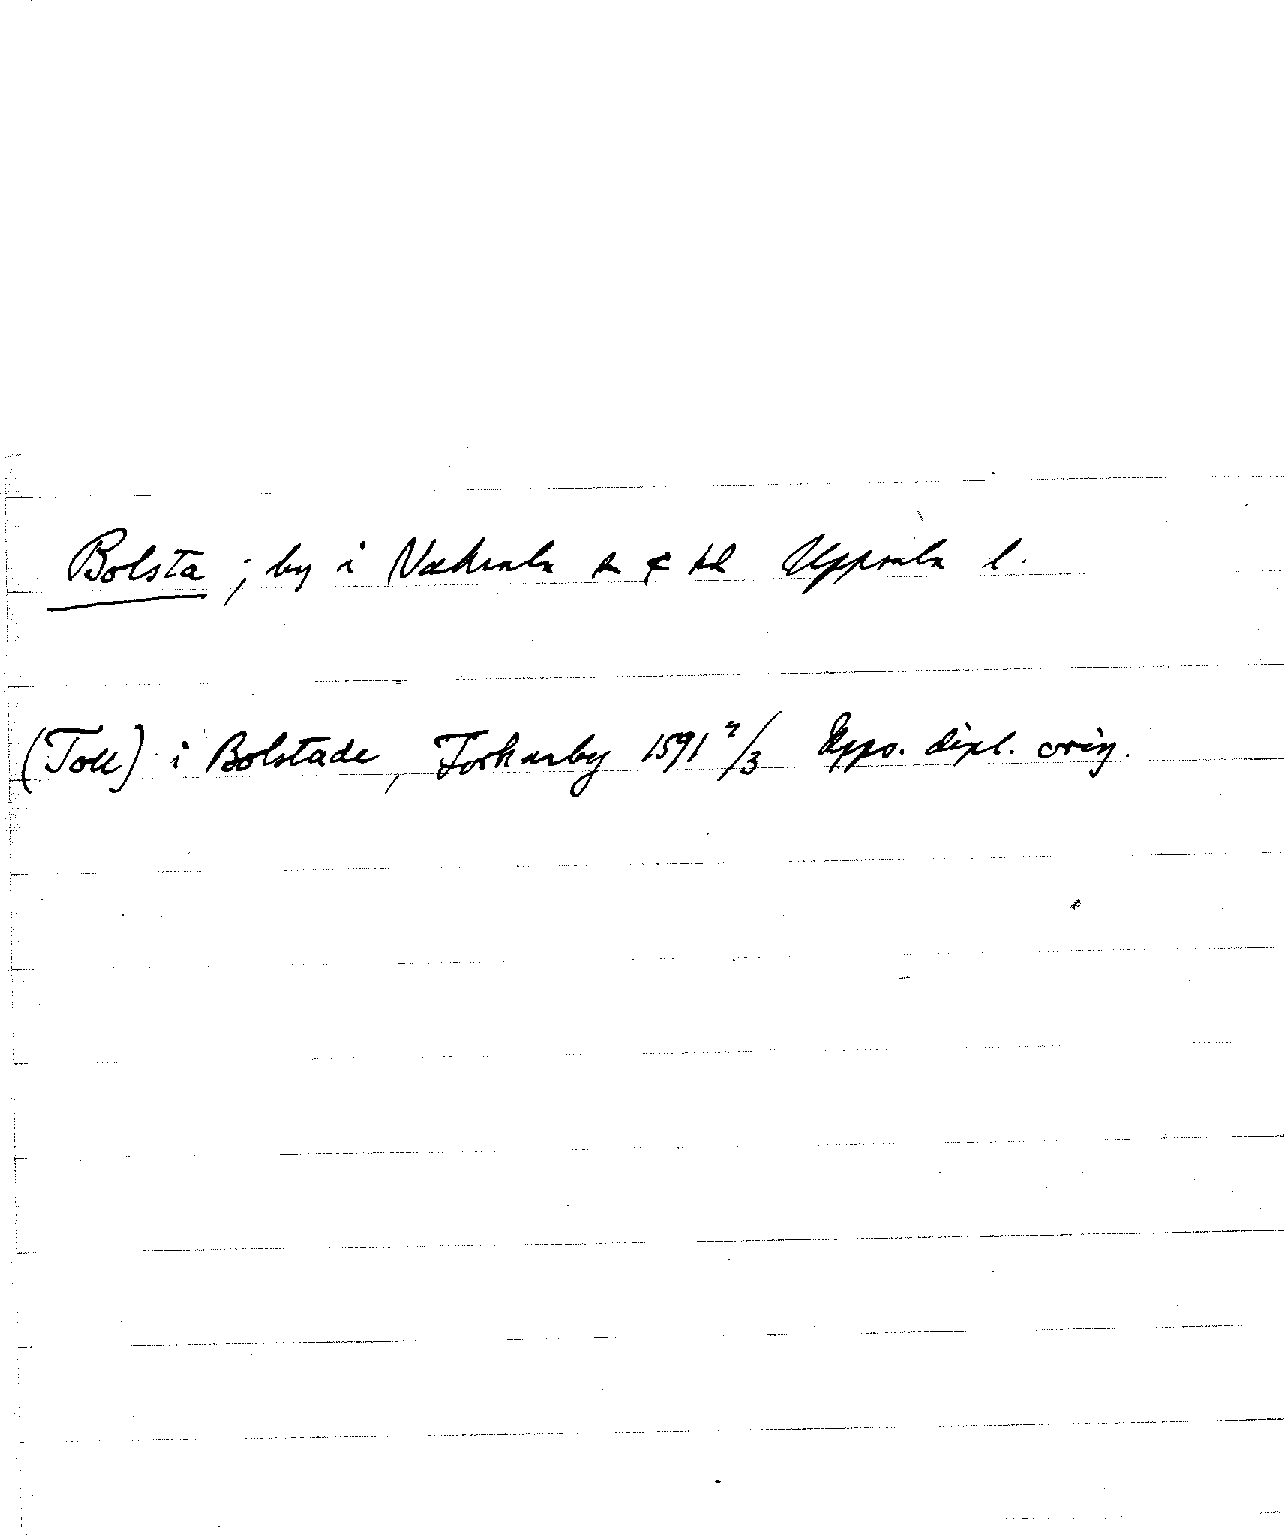 Bolsta ; by i Vaksala sn & hd Uppsala l.
(Toll) i Bolstade, Forkarby 1591 2/3 Upps. dipl. orig.